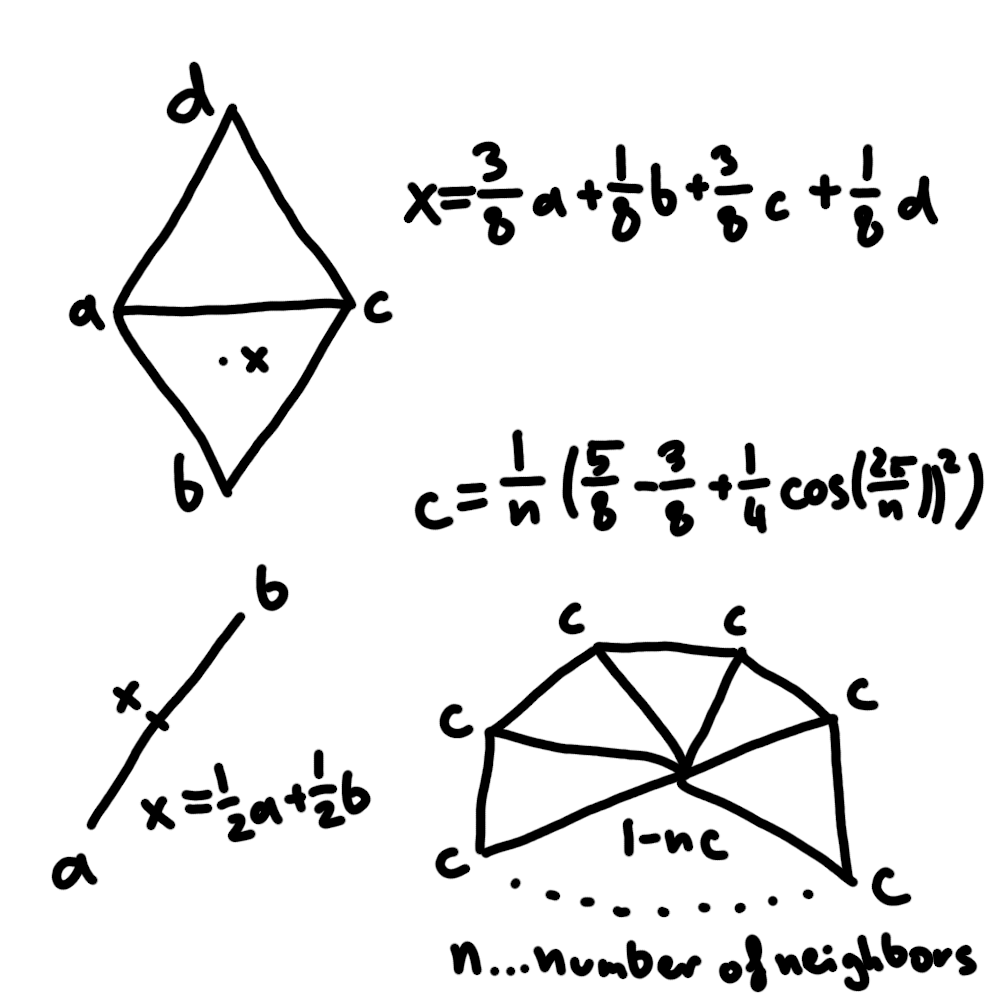 d
x=3/8 a+1/8 b+3/8 c+1/8 d
a
c
x
b
c=1/n (5/8-3/8+1/4 cos(2π/n))²)
b
x
x=1/2 a+1/2 b
a
c
c
c
c
c
c
1-nc
n...number of neighbors